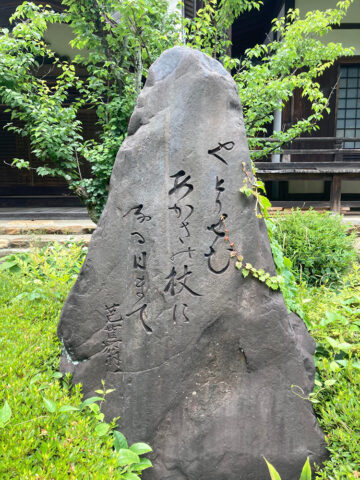 やとりせむ
あかさの杖に
なる日まて
芭蕉翁